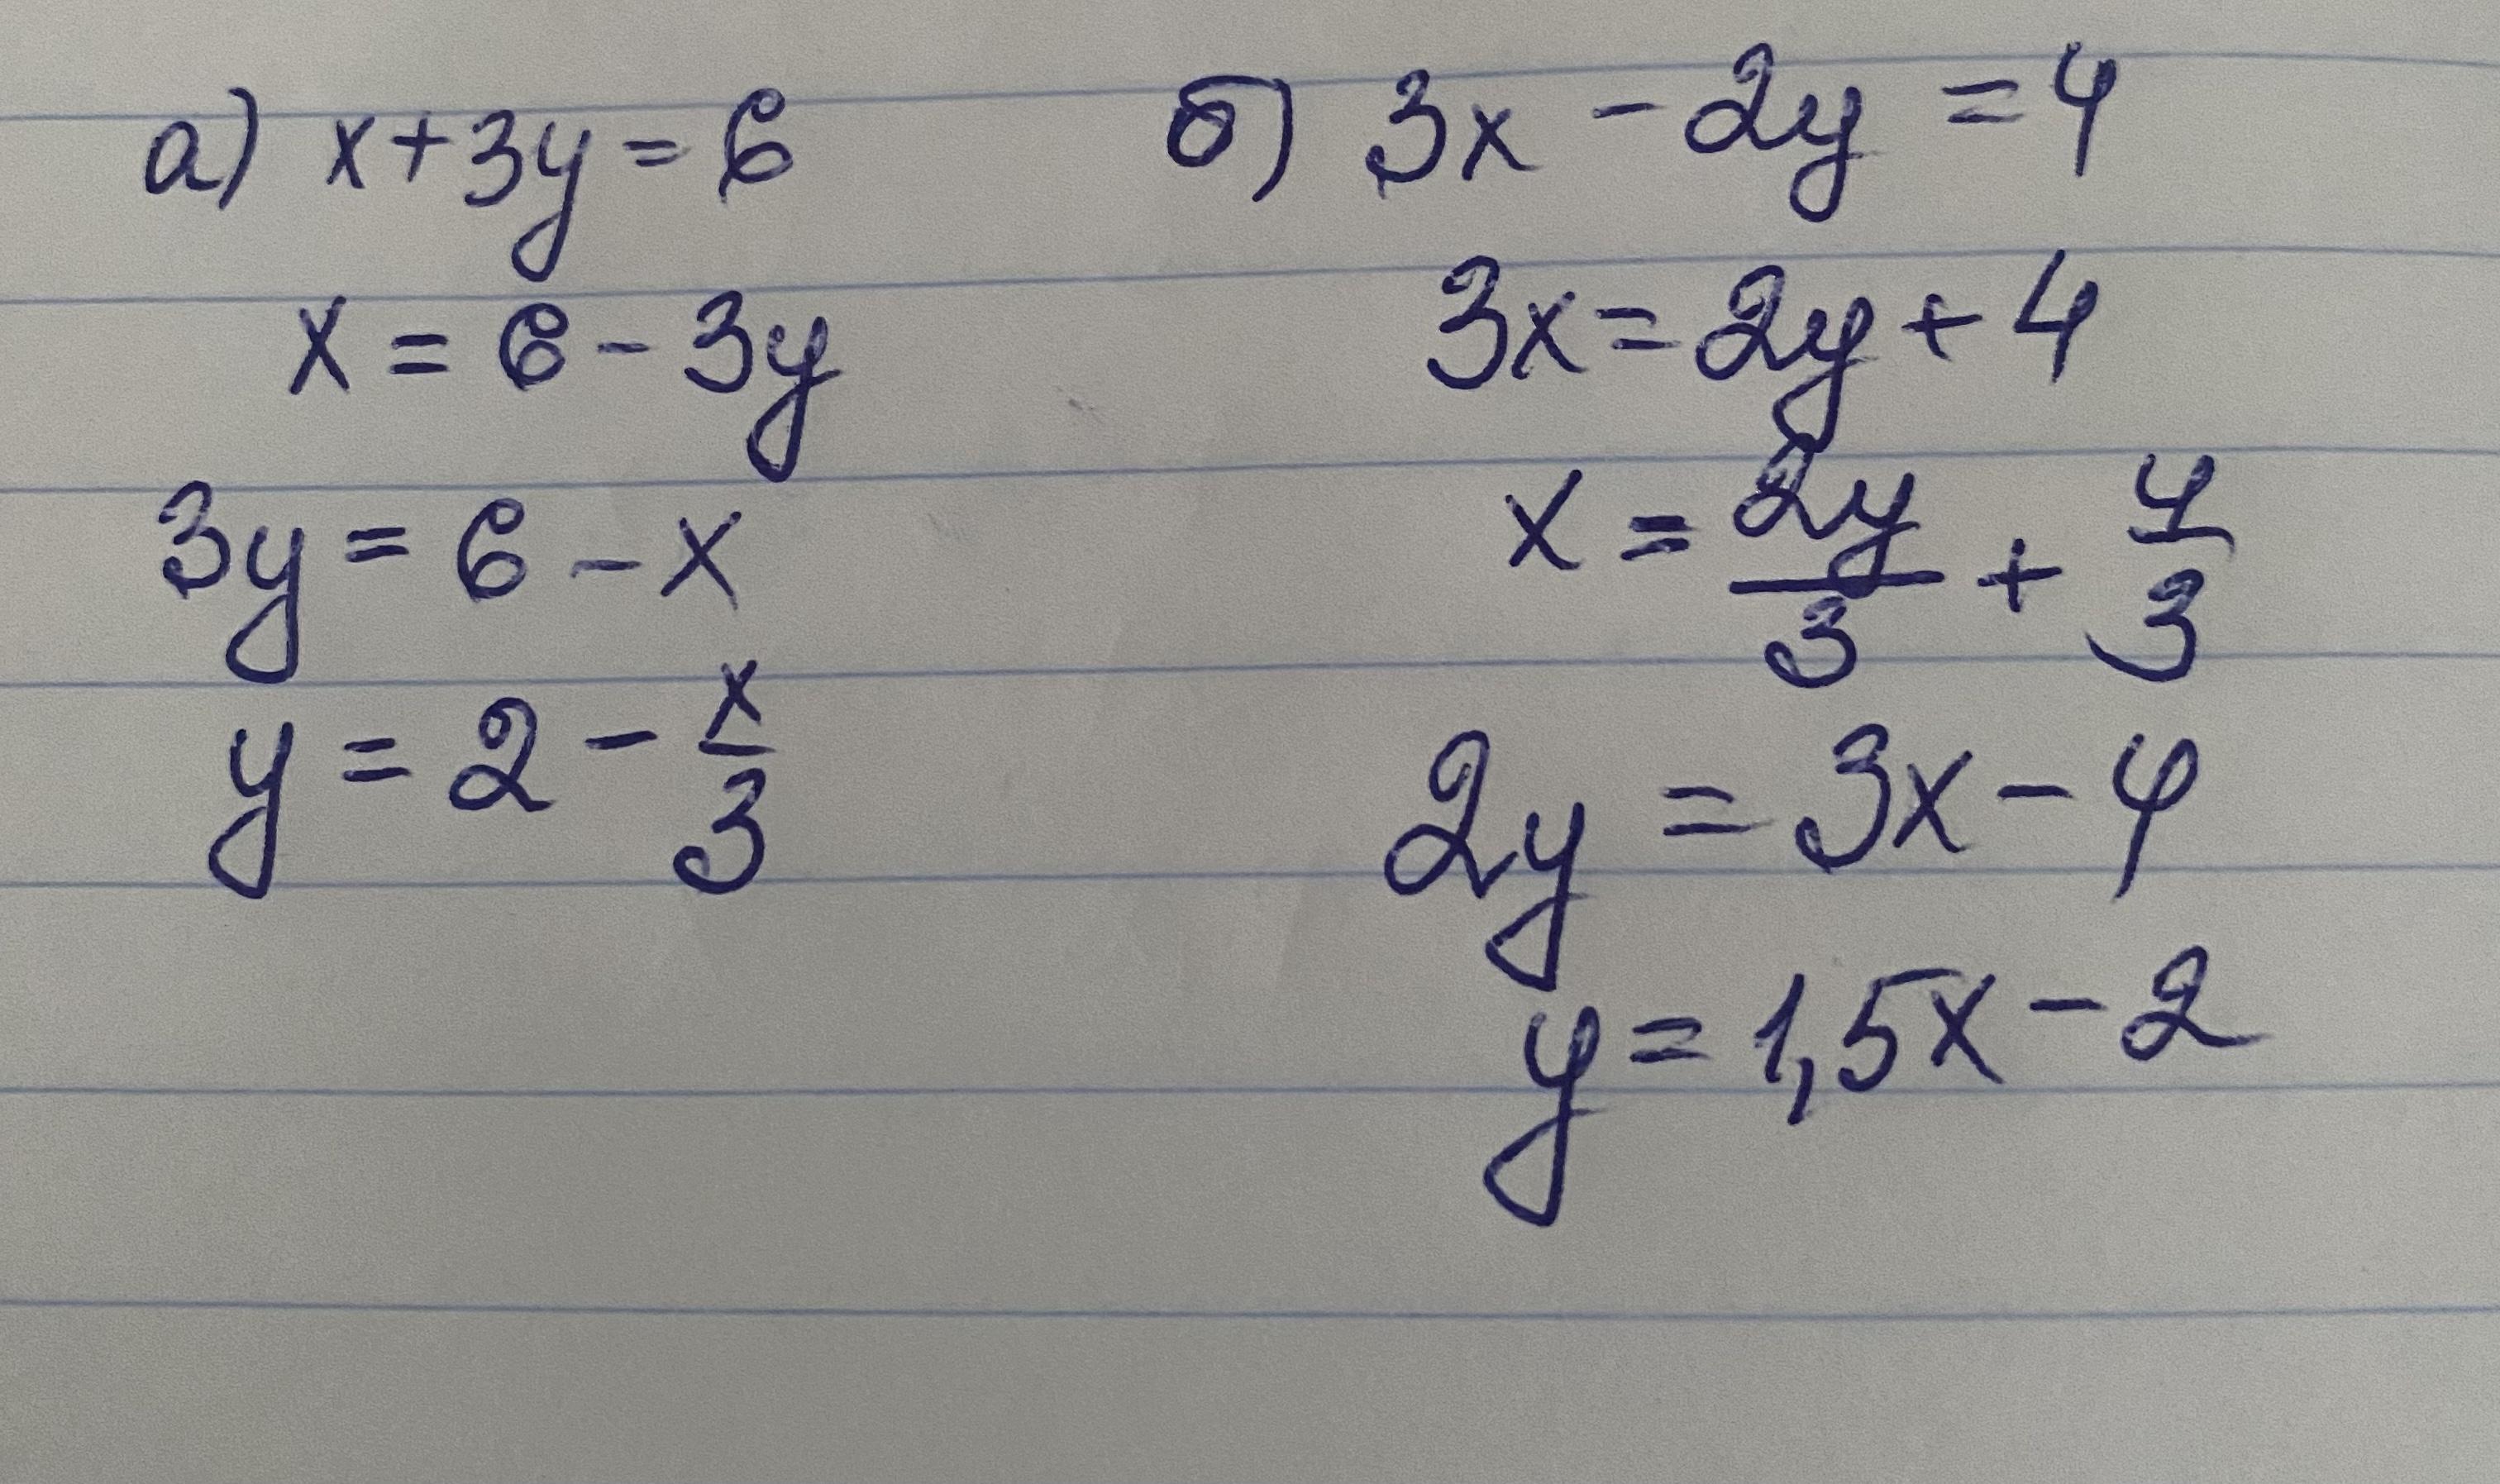 а) x+3y=6
x = 6-3y
3y = 6-x
y = 2 - x/3
б) 3x - 2y = 4
3x = 2y + 4
x = 2y/3 + 4/3
2y = 3x - 4
y = 1,5x - 2